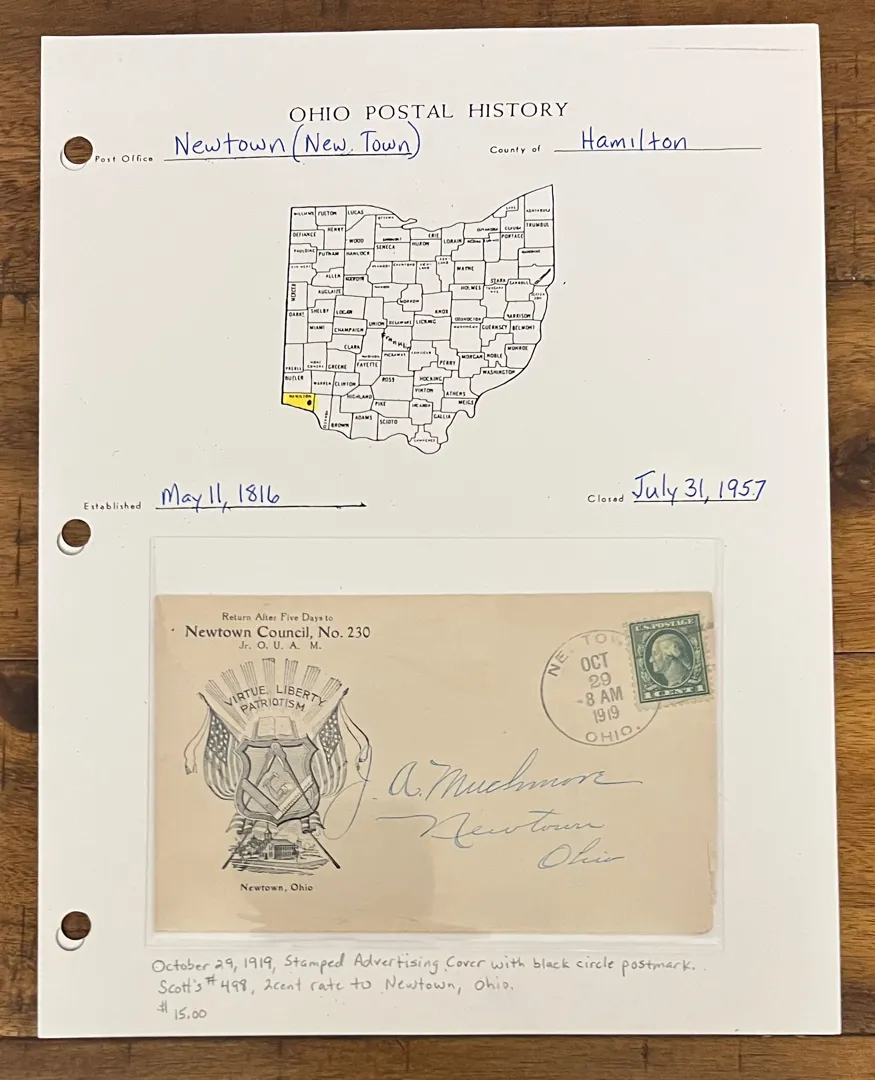 OHIO POSTAL HISTORY
Post Office Newtown (New Town) County of Hamilton
WILLIAMS FULTON LUCAS OTTAWA LAKE ASHTABULA
DEFIANCE HENRY WOOD SANDUSKY ERIE LORAIN CUYAHOGA GEAUGA TRUMBULL
PAULDING PUTNAM HANCOCK SENECA HURON MEDINA SUMMIT PORTAGE
VAN WERT ALLEN WYANDOT CRAWFORD WAYNE STARK
MERCER AUGLAIZE HARDIN MARION MORROW HOLMES CARROLL
DARKE SHELBY LOGAN UNION DELAWARE KNOX COSHOCTON HARRISON
MIAMI CHAMPAIGN LICKING GUERNSEY BELMONT
CLARK Franklin
PREBLE GREENE MADISON FAYETTE PICKAWAY PERRY MORGAN NOBLE MONROE
BUTLER WARREN CLINTON ROSS HOCKING WASHINGTON
HAMILTON HIGHLAND PIKE VINTON ATHENS
BROWN ADAMS SCIOTO GALLIA MEIGS
LAWRENCE
Established May 11, 1816 Closed July 31, 1957
Return After Five Days to
Newtown Council, No. 230
Jr. O. U. A. M.
VIRTUE, LIBERTY
PATRIOTISM
Newtown, Ohio
OCT
29
-8 AM
1919
OHIO.
U.S. POSTAGE
1 CENT 1
J. A. Muchmore
Newtown
Ohio
October 29, 1919, Stamped Advertising Cover with black circle postmark.
Scott's #498, 2cent rate to Newtown, Ohio.
$15.00